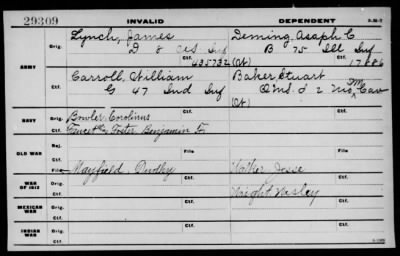 29309 INVALID DEPENDENT 3-M-7
ARMY
Orig. Lynch, James Deming, Asaph C
D 8 U.S. Inf B 75 Ill Inf
Ctf. 435732 (Ct) Ctf. 17886
Carroll, William Baker, Stuart
G 47 Ind Inf Q.M.S. 2 Mo Cav
(Ct)
NAVY
Orig. Bowler, Cornelius
Ctf. Foster Benjamin F.
OLD WAR
File File
WAR OF 1812
Orig. Mayfield, Dudley Walker Jesse
Ctf. Wright Wesley
MEXICAN WAR
Orig.
Ctf.
INDIAN WAR
Orig.
Ctf.